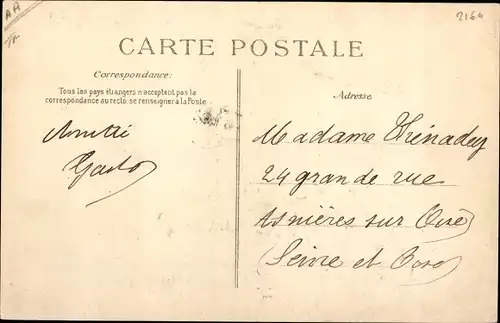 AA
2164
CARTE POSTALE
Correspondance:
Tous les pays étrangers n'acceptent pas la
correspondance au recto, se renseigner à la Poste
Adresse
Amitié
Madame Thénadey
24 grande rue
Asnières sur Oise
(Seine et Oise)